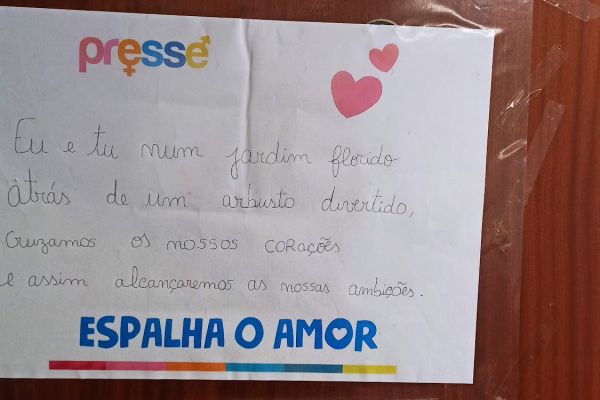 presse
Eu e tu num jardim florido
atrás de um arbusto divertido,
Cruzamos os nossos corações
e assim alcançaremos as nossas ambições.
ESPALHA O AMOR